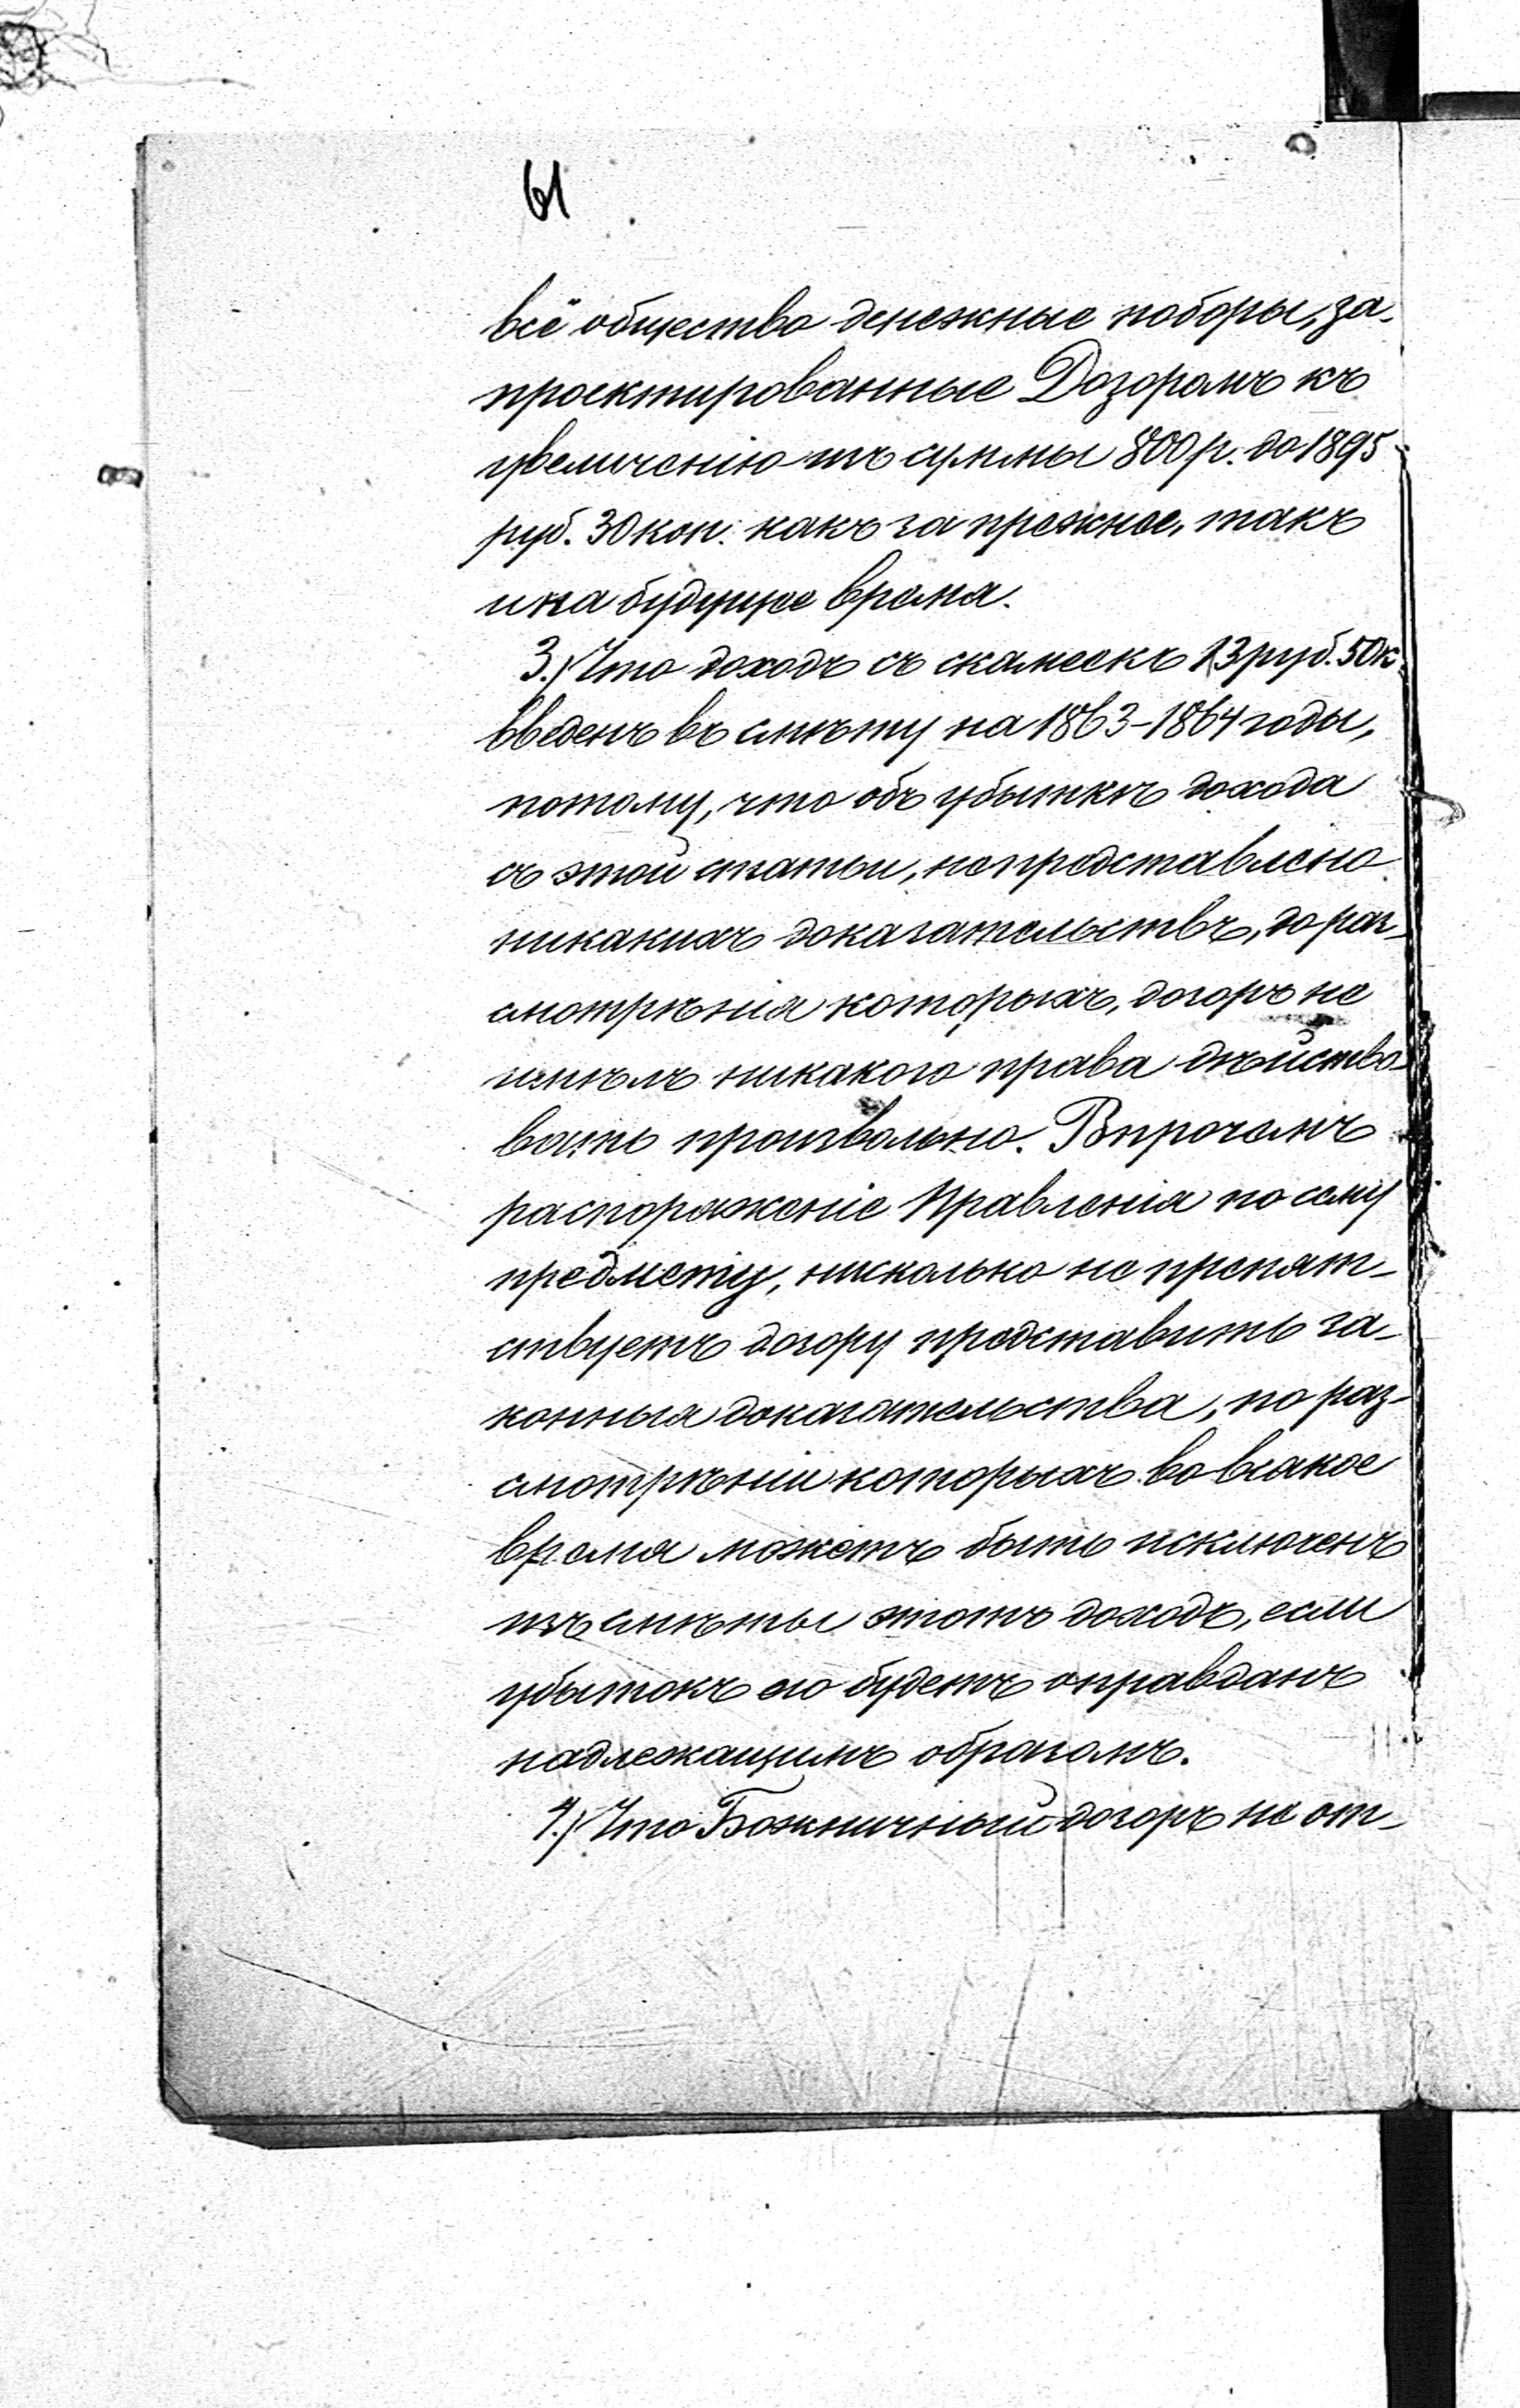 61
всё общества денежные поборы, за-
проектированные Дозоромъ къ
увеличенію изъ суммы 800 р. до 1895
руб. 30 коп. какъ за прежнее, такъ
и на будущее время.
3.) Что доходъ съ скамеекъ 13 руб. 50 к.
введенъ въ смѣту на 1863-1864 годы,
потому, что объ убыткѣ дохода
съ этой статьи, непредставлено
никакихъ доказательствъ, до раз-
смотрѣнія которыхъ, дозоръ не
имѣлъ никакого права дѣйство-
вать произвольно. Впрочемъ
распоряженіе Правленія по сему
предмету, нисколько не препят-
ствуетъ дозору представить за-
конныя доказательства, по раз-
смотрѣніи которыхъ во всякое
время можетъ быть исключенъ
изъ смѣты этотъ доходъ, если
убытокъ его будетъ оправданъ
надлежащимъ образомъ.
4.) Что Божничный дозоръ не от-